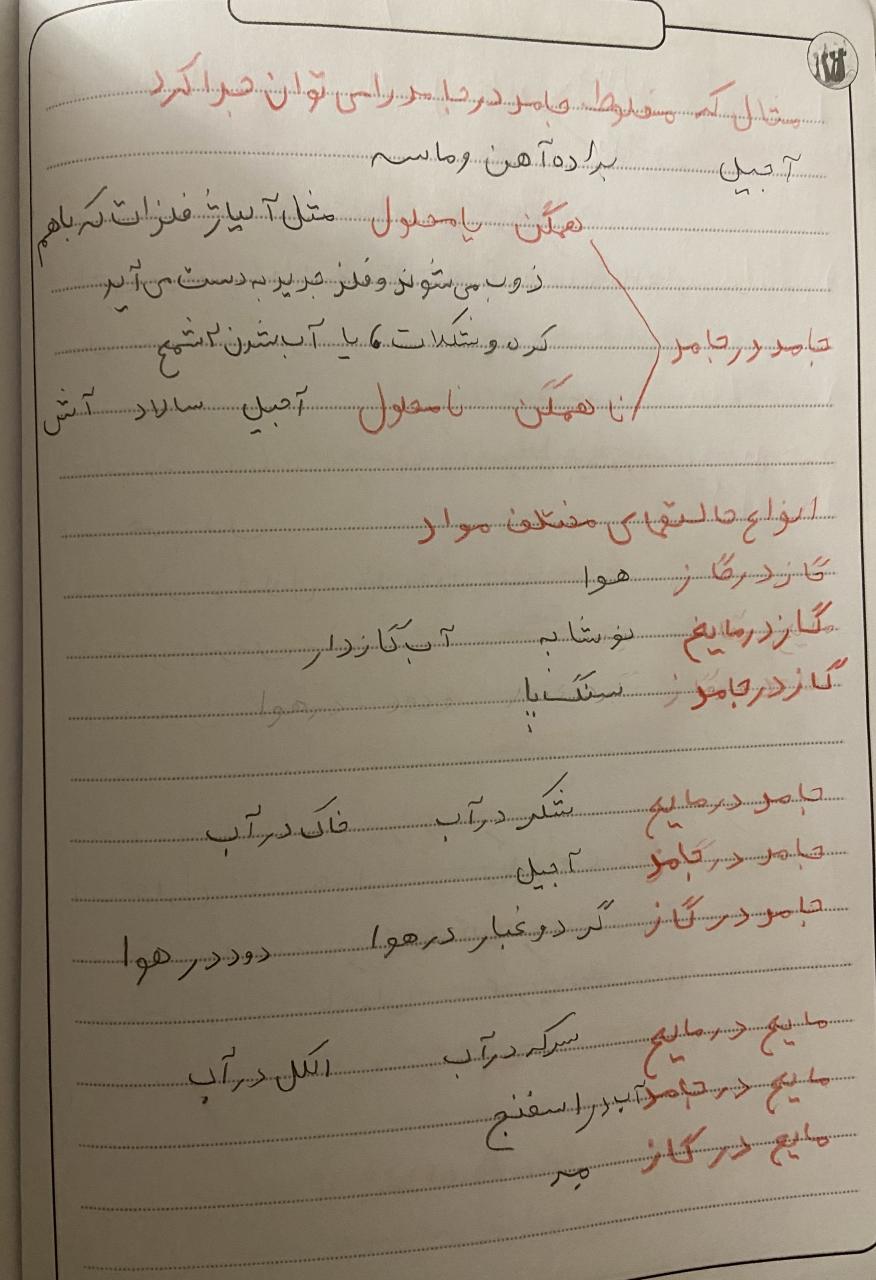 مثال که مخلوط جامد در جامد را می توان جدا کرد
آجیل براده آهن و ماسه
همگن یا محلول مثل آلیاژ فلزات که باهم
ذوب می شوند و فلز جدید به دست می آید
جامد در جامد کره و شکلات یا آب شدن ۲ شمع
نا همگن نا محلول آجیل سالاد آش
انواع حالتهای مختلف مواد
گاز در گاز هوا
گاز در مایع نوشابه آب گازدار
گاز در جامد سنگ پا
جامد در مایع شکر در آب خاک در آب
جامد در جامد آجیل
جامد در گاز گرد و غبار در هوا دود در هوا
مایع در مایع سرکه در آب الکل در آب
مایع در جامد آب در اسفنج
مایع در گاز مه